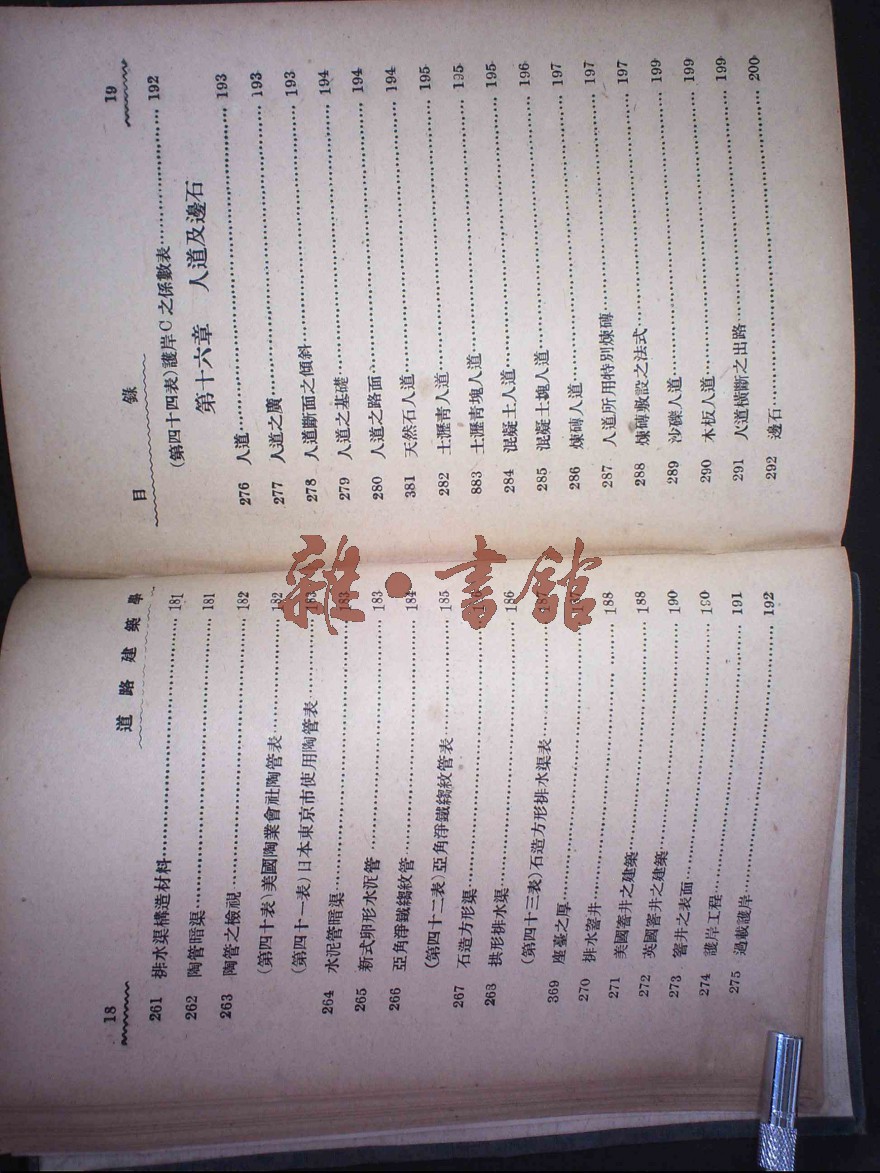 18
道路建築學
261 排水渠構造材料 181
262 陶管暗渠 181
263 陶管之檢視 182
(第四十表)美國陶業會社陶管表 182
(第四十一表)日本東京市使用陶管表 183
264 水泥管暗渠 183
265 新式卵形水泥管 183
266 亞角淨鐵縐紋管 184
(第四十二表)亞角淨鐵縐紋管表 185
267 石造方形渠
268 拱形排水渠 186
(第四十三表)石造方形排水渠表 187
369 座臺之厚
270 排水窨井 188
271 美國窨井之建築 188
272 英國窨井之建築 190
273 窨井之表面 190
274 護岸工程 191
275 過載護岸 192
目錄
19
(第四十四表)護岸C之係數表 192
第十六章 人道及邊石
276 人道 193
277 人道之廣 193
278 人道斷面之傾斜 193
279 人道之基礎 194
280 人道之路面 194
381 天然石人道 194
282 土瀝青人道 195
883 土瀝青塊人道 195
284 混凝土人道 195
285 混凝土塊人道 196
286 煉磚人道 197
287 人道所用特別煉磚 197
288 煉磚敷設之法式 197
289 沙礫人道 199
290 木板人道 199
291 人道橫斷之出路 199
292 邊石 200
雜·書館